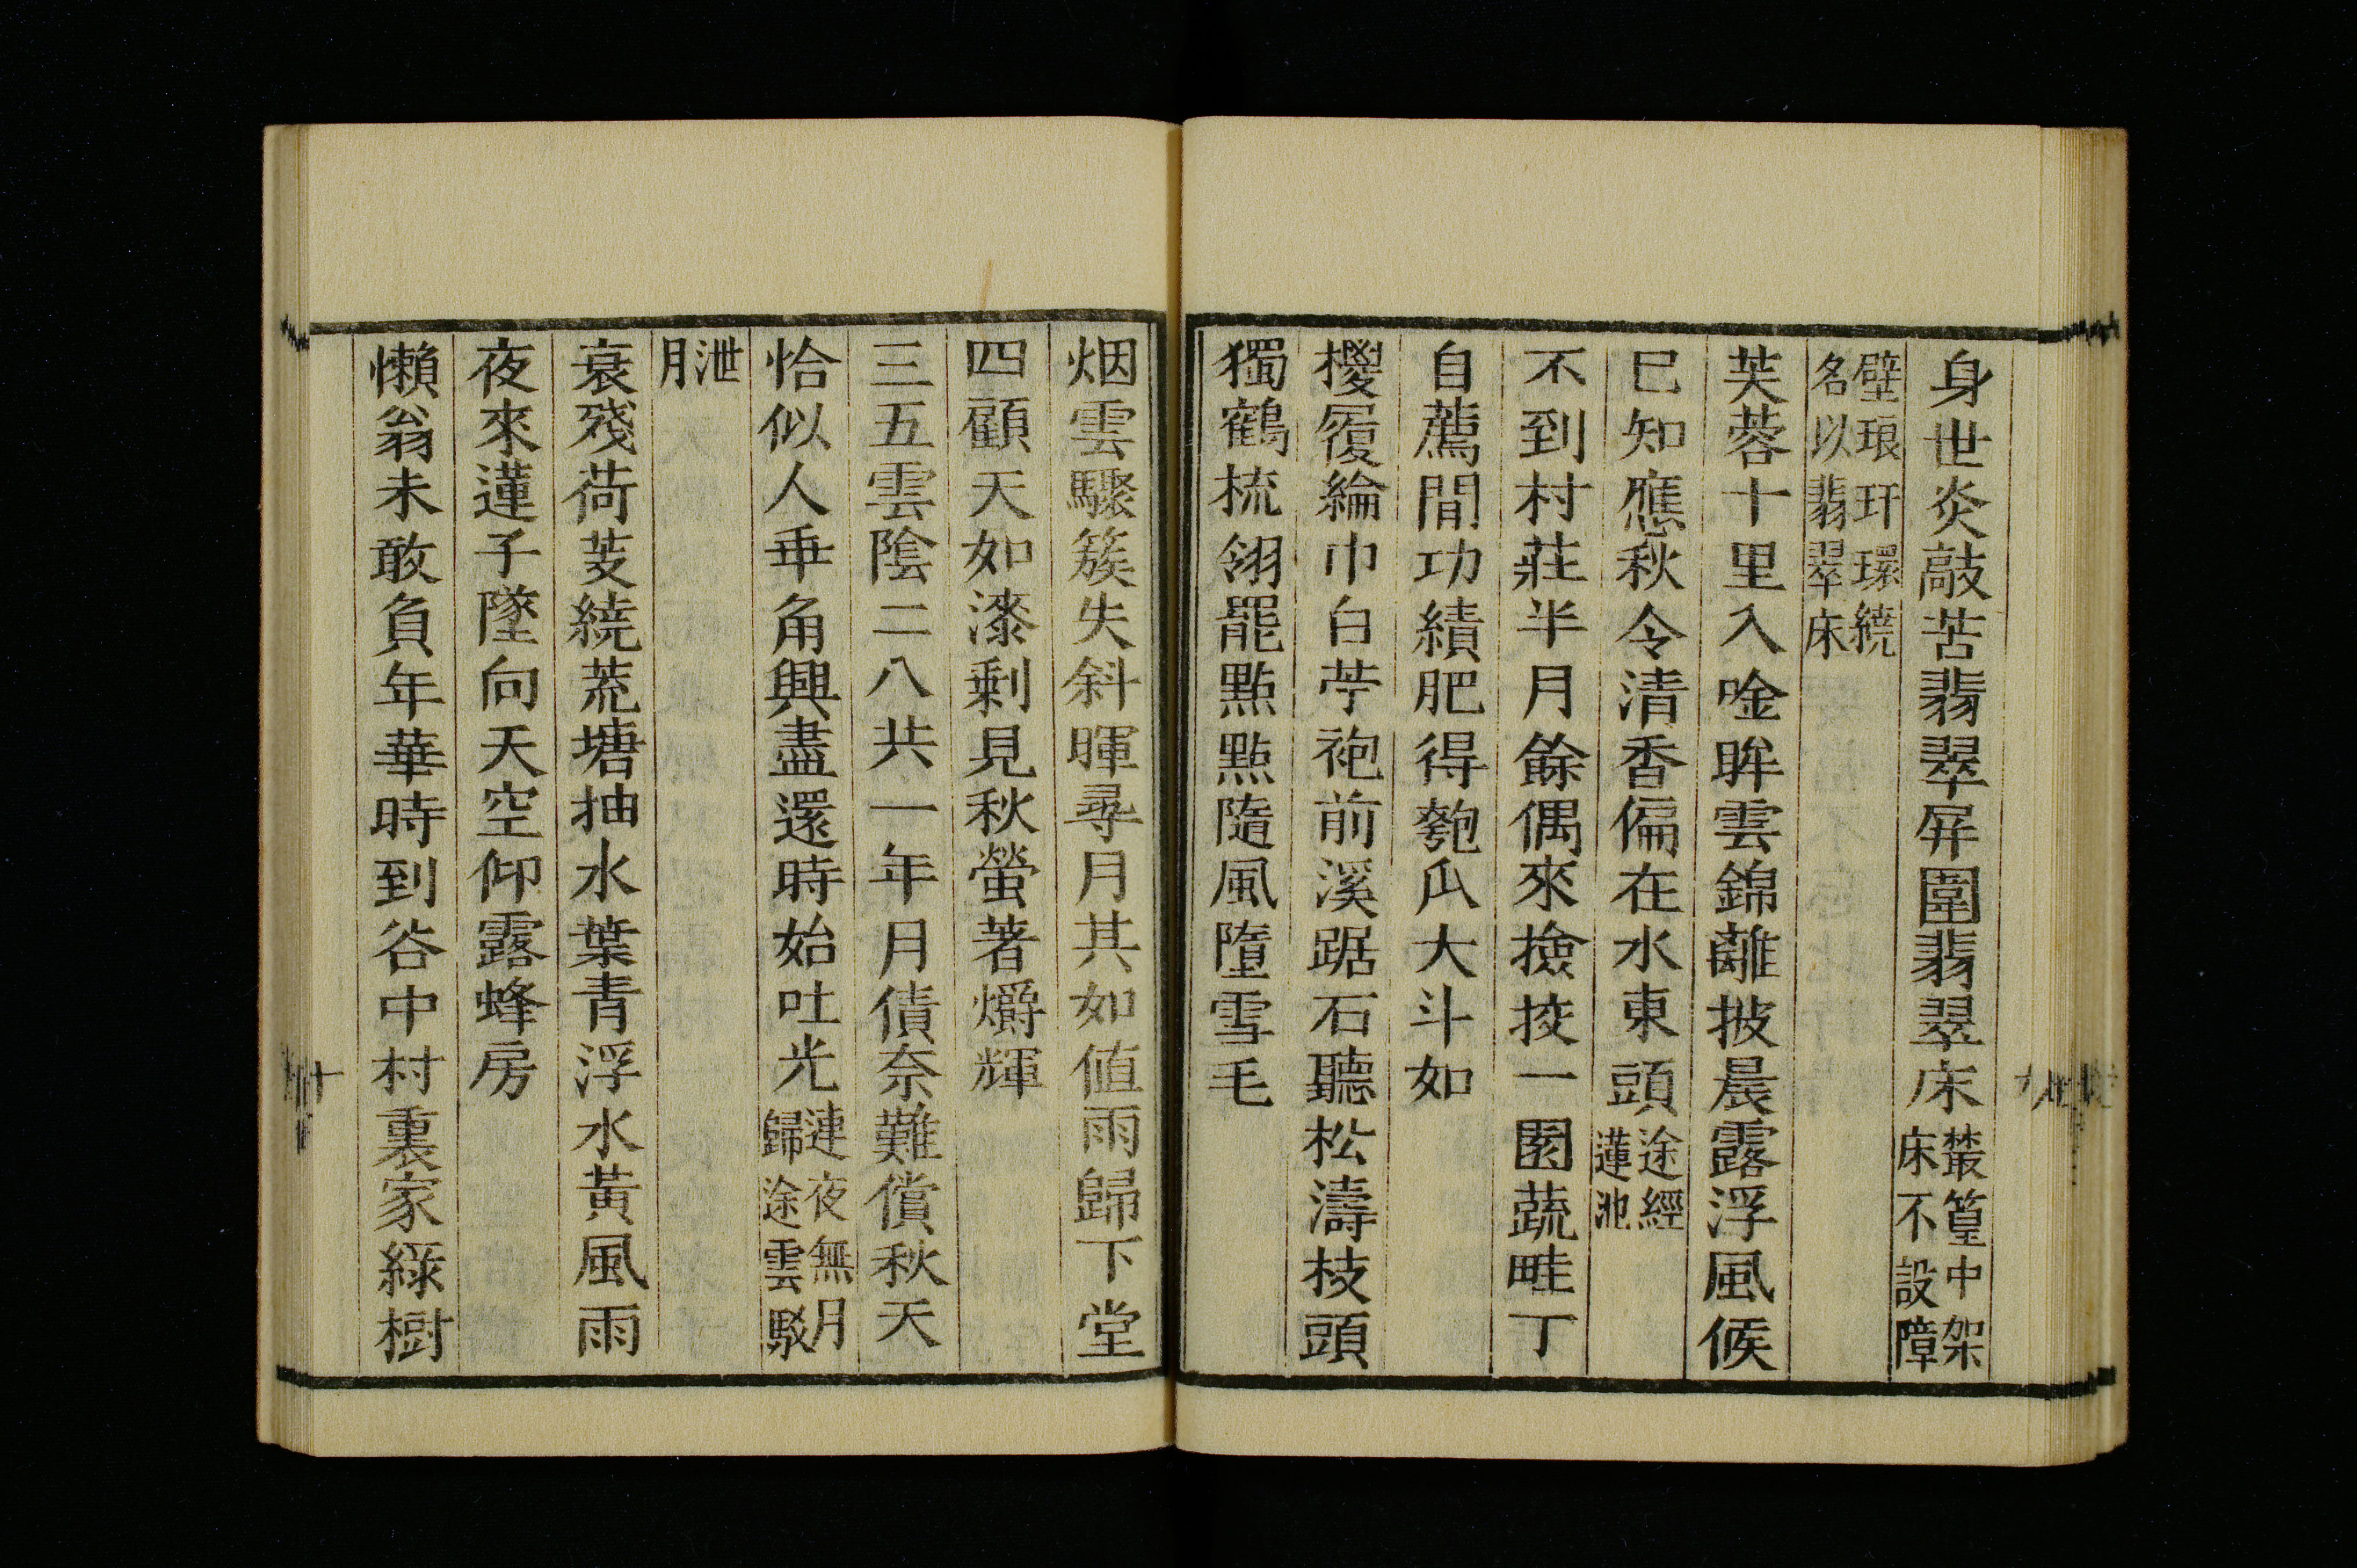 身世炎敲苦翡翠屏圍翡翠床叢篁中架床不設障
壁琅玕環繞名以翡翠床
芙蓉十里入唫眸雲錦離披晨露浮風候
已知應秋令清香偏在水東頭途經蓮池
不到村莊半月餘偶來撿挍一園蔬畦丁
自薦間功績肥得匏瓜大斗如
椶履綸巾白苧袍前溪踞石聽松濤枝頭
獨鶴梳翎罷點點隨風墮雪毛
烟雲驟簇失斜暉尋月其如値雨歸下堂
四顧天如漆剩見秋螢著爝輝
三五雲陰二八共一年月債奈難償秋天
恰似人乖角興盡還時始吐光連夜無月歸途雲駁
泄月
衰殘荷芰繞荒塘抽水葉青浮水黃風雨
夜來蓮子墜向天空仰露蜂房
懶翁未敢負年華時到谷中村裏家綠樹
十